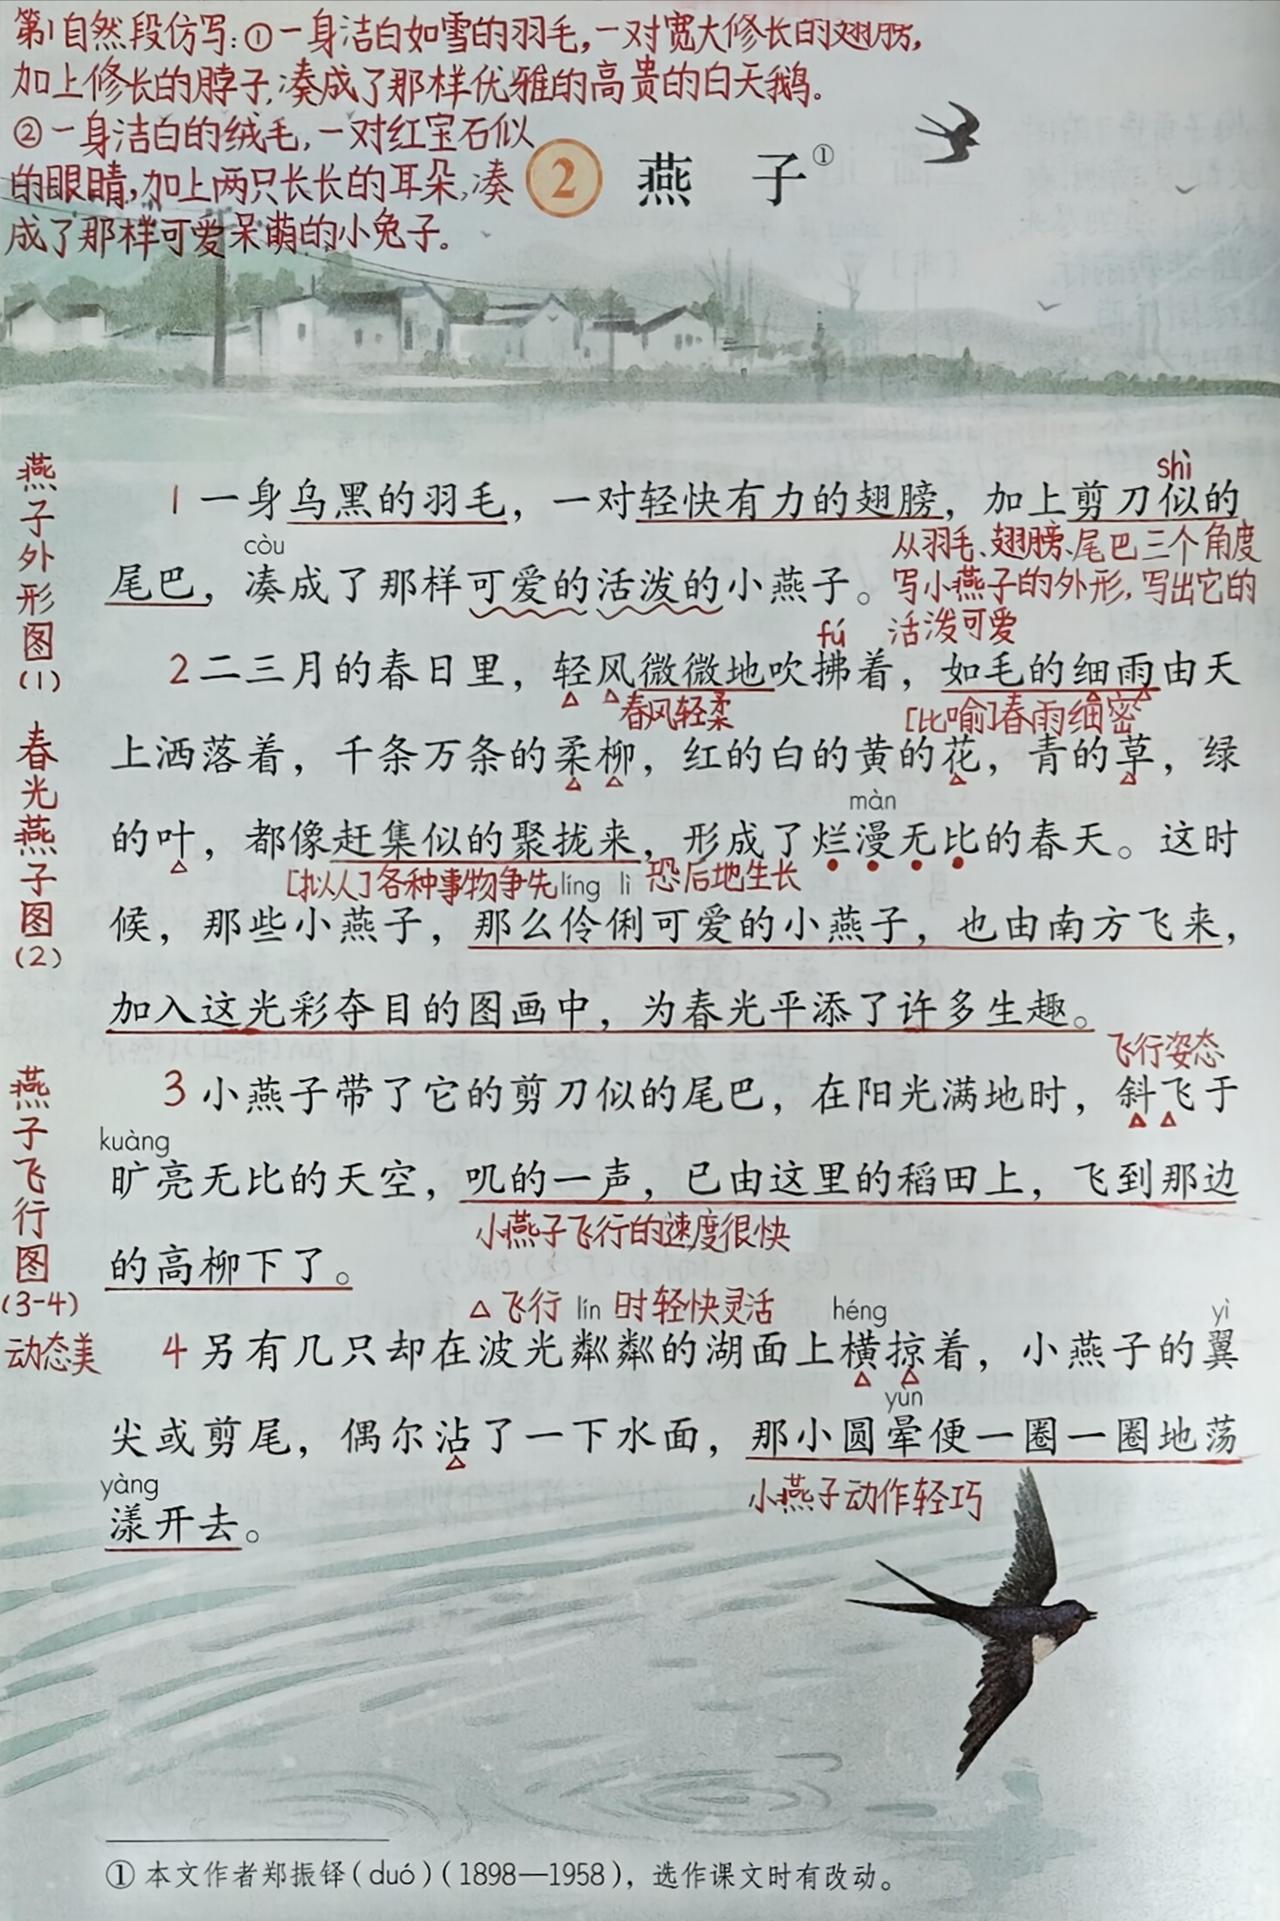 第1自然段仿写:①一身洁白如雪的羽毛,一对宽大修长的翅膀,
加上修长的脖子,凑成了那样优雅的高贵的白天鹅。
②一身洁白的绒毛,一对红宝石似
的眼睛,加上两只长长的耳朵,凑
成了那样可爱呆萌的小兔子。
2 燕子①
燕子外形图(1)
shì
1 一身乌黑的羽毛，一对轻快有力的翅膀，加上剪刀似的
从羽毛、翅膀、尾巴三个角度
còu
尾巴，凑成了那样可爱的活泼的小燕子。
写小燕子的外形,写出它的
活泼可爱
春光燕子图(2)
fú
2 二三月的春日里，轻风微微地吹拂着，如毛的细雨由天
春风轻柔 [比喻]春雨细密
上洒落着，千条万条的柔柳，红的白的黄的花，青的草，绿
màn
的叶，都像赶集似的聚拢来，形成了烂漫无比的春天。这时
[拟人]各种事物争先恐后地生长
líng lì
候，那些小燕子，那么伶俐可爱的小燕子，也由南方飞来，
加入这光彩夺目的图画中，为春光平添了许多生趣。
燕子飞行图(3-4)
动态美
飞行姿态
3 小燕子带了它的剪刀似的尾巴，在阳光满地时，斜飞于
kuàng
旷亮无比的天空，叽的一声，已由这里的稻田上，飞到那边
小燕子飞行的速度很快
的高柳下了。
△飞行时轻快灵活
lín héng yì
4 另有几只却在波光粼粼的湖面上横掠着，小燕子的翼
yùn
尖或剪尾，偶尔沾了一下水面，那小圆晕便一圈一圈地荡
小燕子动作轻巧
yàng
漾开去。
① 本文作者郑振铎(duó)(1898—1958)，选作课文时有改动。